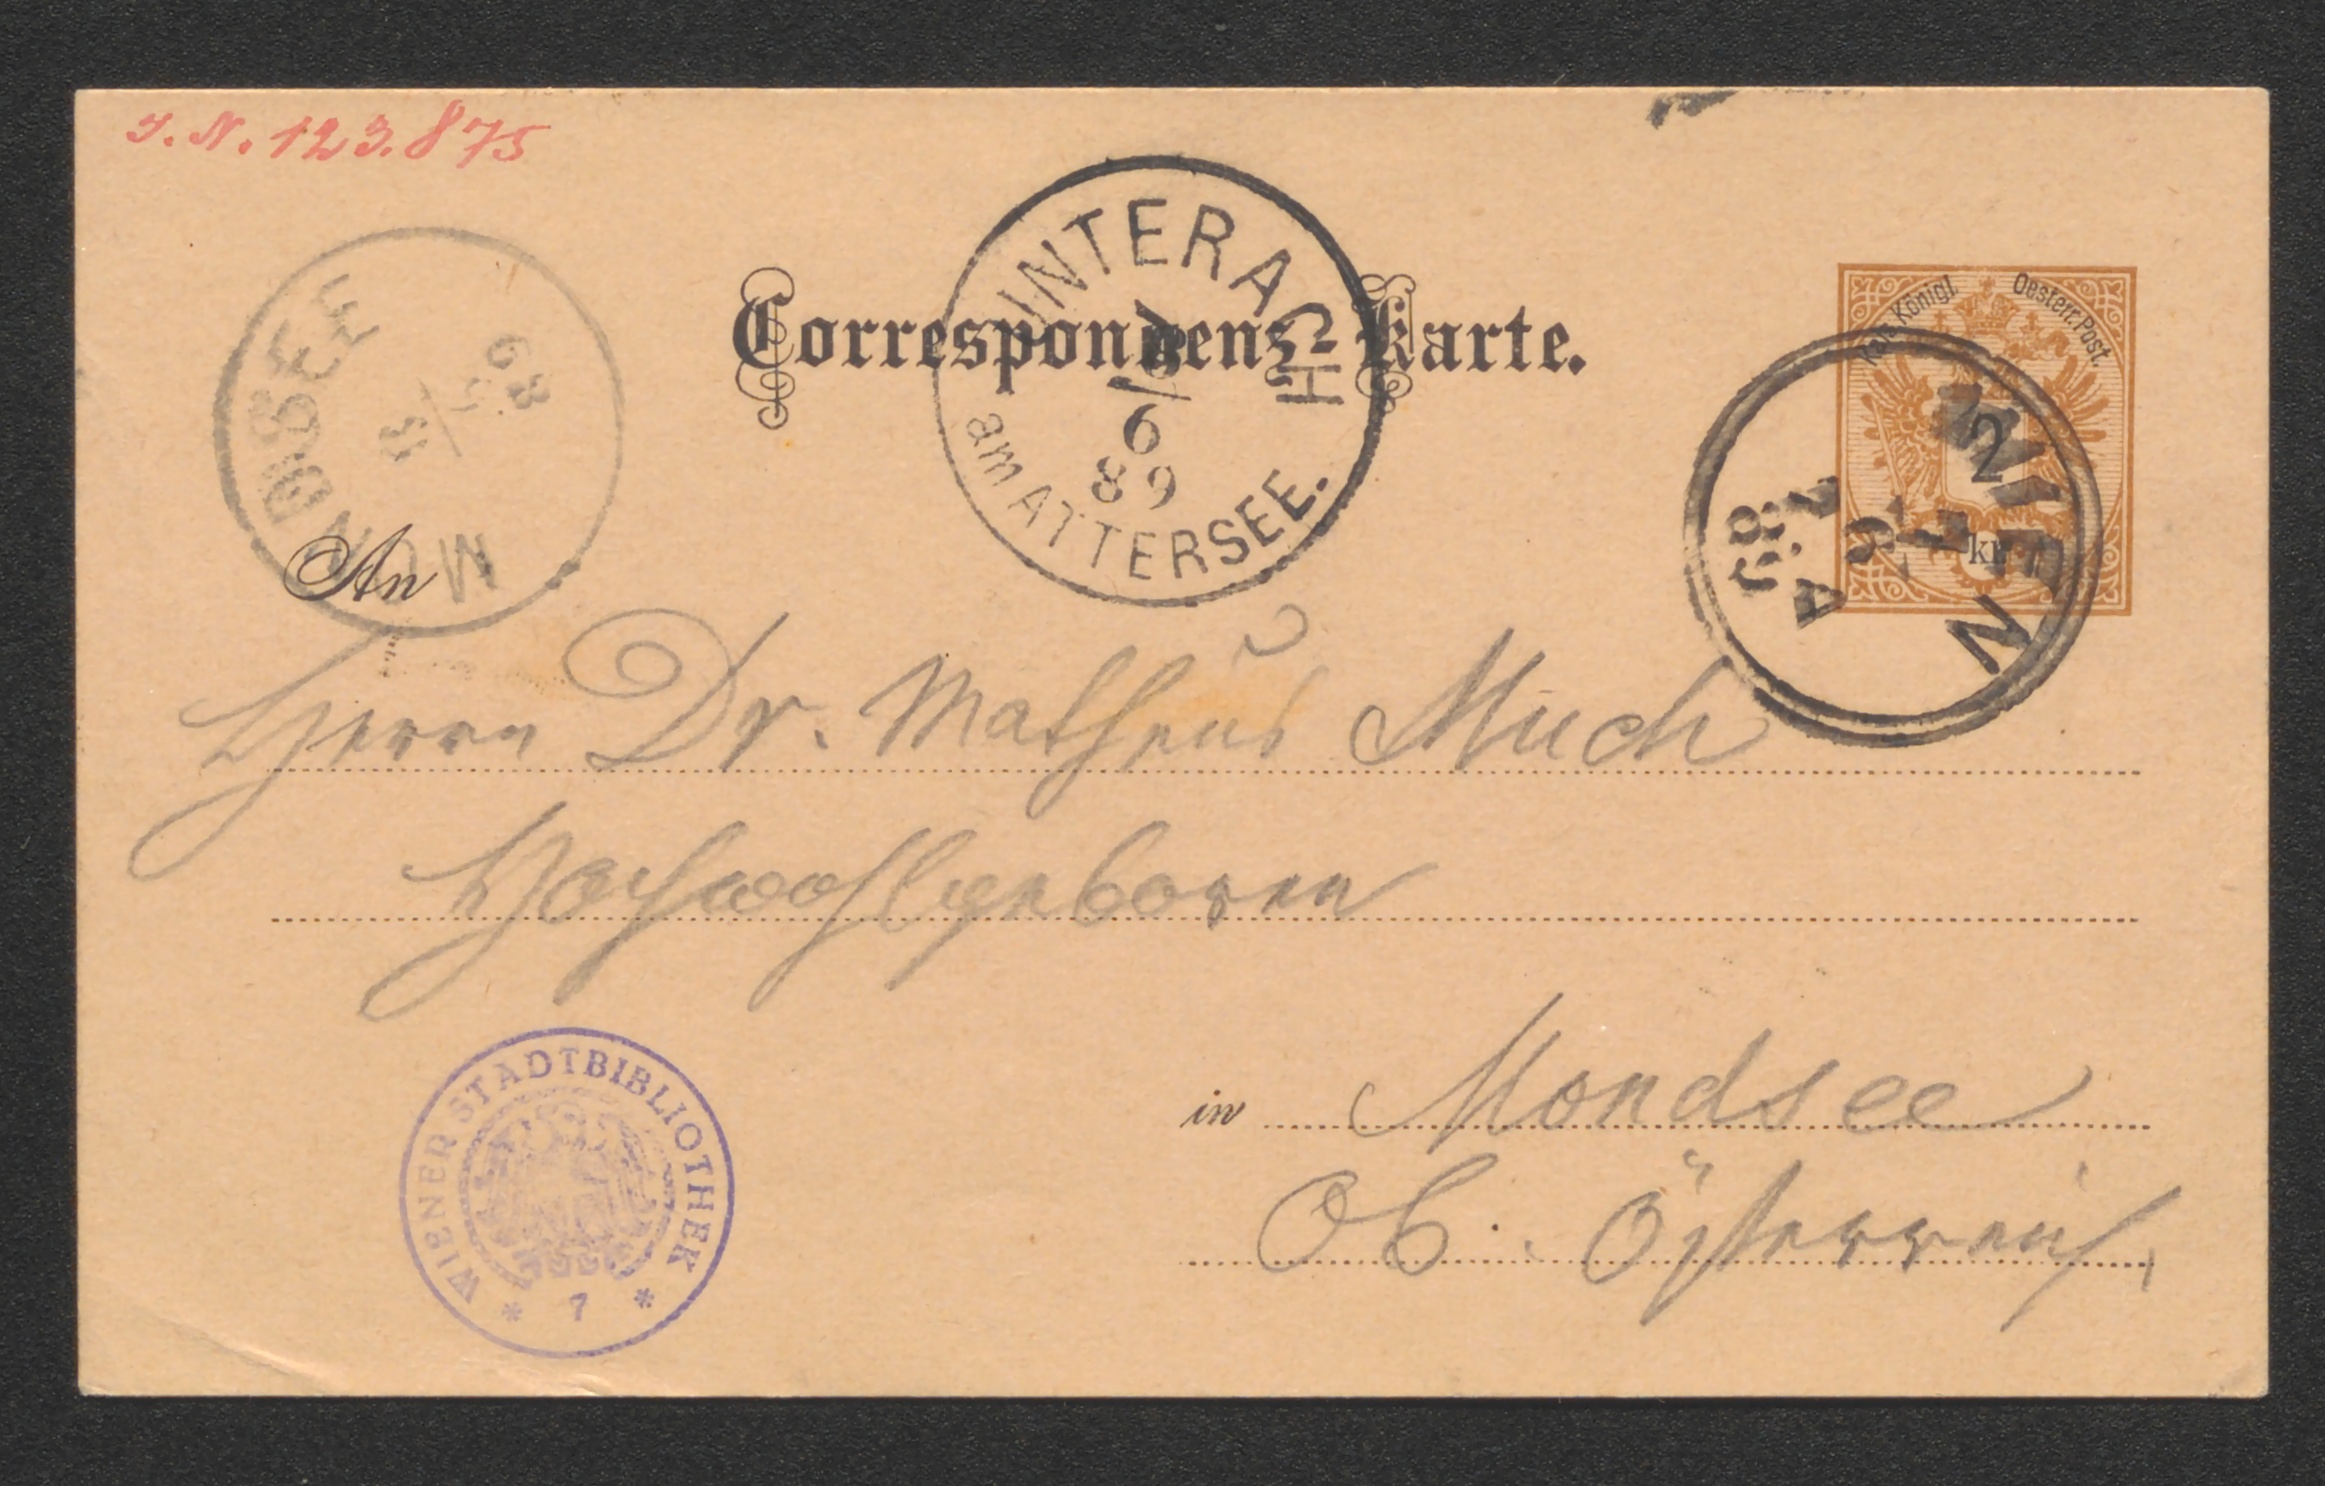 I. N. 123.875
Correspondenz-Karte.
UNTERACH
am ATTERSEE.
6
89
MONDSEE
89
Kais. Königl. Oesterr. Post.
2
kr
WIEN
89
An
Herrn Dr. Matheus Much
Hochwohlgeboren
in Mondsee
Ob. Österreich
WIENER STADTBIBLIOTHEK
* 7 *